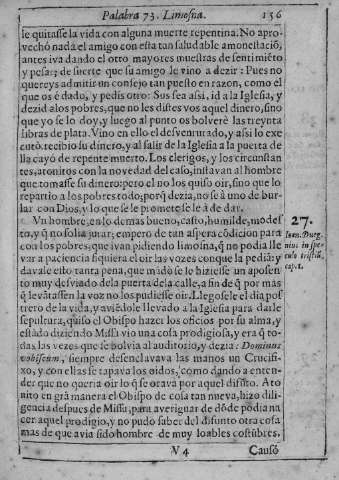 Palabra 73. Limosna. 156
se quitasse la vida con alguna muerte repentina. No apro-
vechò nada el amigo con esta tan saludable amonestació,
antes iva dando el otro mayores muestras de sentimiēto
y pesar; de suerte que su amigo le vino a dezir: Pues no
quereys admitir un consejo tan puesto en razon, como el
que os è dado, y pedis otro: Sos sea assi, id a la Iglesia, y
dezid a los pobres, que no les distes vos aquel dinero, sino
que yo se lo doy, y luego al punto os bolverè las treynta
libras de plata. Vino en ello el desventurado, y assi lo exe
cutò. recibio su dinero, y al salir de la Iglesia a la puerta de
lla cayò de repente muerto. Los clerigos, y los circunstan
tes, atonitos con la novedad del caso, instavan al hombre
que tomasse su dinero: pero el no los quiso oir, sino que lo
repartio a los pobres todo; porq̃ dezia, no se à uno de bur-
lar con Dios, y lo que se le promete se le à de dar.
Un hombre, en lo de mas bueno, casto, humilde, modes
to, y q̃ no solia jurar; empero de tan aspera cōdicion para
con los pobres, que ivan pidiendo limosna, q̃ no podia lle
var a paciencia siquiera el oir las vozes conque la pediā: y
davale esto tanta pena, que mādò se le hiziesse un aposen
to muy desviado dela puerta de la calle, a fin de q̃ por mas
q̃ levātassen la voz no los pudiesse oir. Llegosele el dia pos
trero de la vida, y aviēdole llevado a la Iglesia para darle
sepultura, quiso el Obispo hazer los oficios por su alma, y
estādo diziēdo Missa vio una cosa prodigiosa, y era q̃ to-
das las vezes que se bolvia al auditorio, y dezia: Dominus
vobiscum, siempre desenclavava las manos un Crucifi-
xo, y con ellas se tapava los oidos, como dando a enten-
der que no queria oir lo q̃ se orava por aquel difūto. Ato
nito en grā manera el Obispo de cosa tan nueva, hizo dili-
gencia despues de Missa, para averiguar de dōde podia na
cer aquel prodigio, y no pudo saber del difunto otra cosa
mas de que avia sido hombre de muy loables costūbres.
V 4 Causò
27.
Ioan. Burg.
cap. 1.